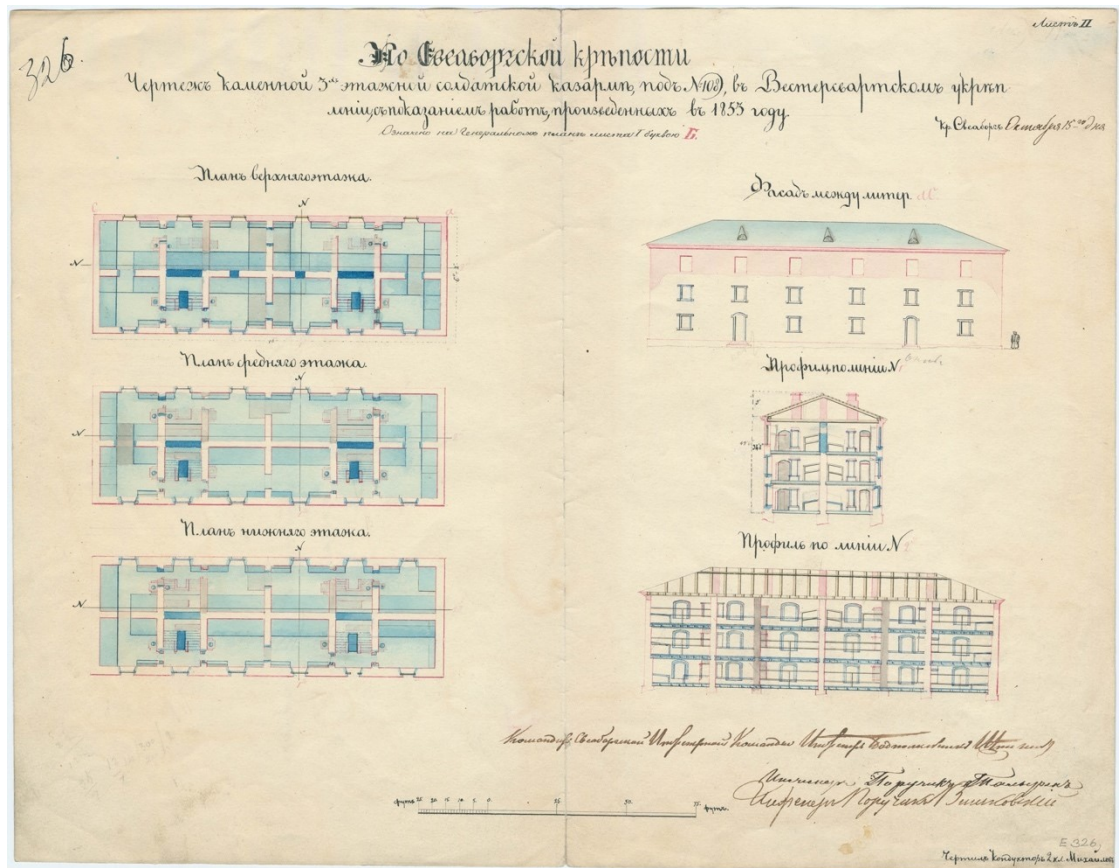 Листъ II
326.
По Свеаборгской крѣпости
Чертежъ каменной 3хъ этажной солдатской казармѣ, подъ №10д), въ Вестерсвартскомъ укрѣп
леніи, съ показаніемъ работъ, произведенныхъ въ 1853 году.
Означено на Генеральномъ планѣ листа I буквою Б.
Кр. Свеаборгъ Октября 15го дня
Планъ верхняго этажа.
N
Планъ средняго этажа.
N
Планъ нижняго этажа.
N
Фасадъ между литер.
Профиль по линіи N
Профиль по линіи N
Командиръ Свеаборгской Инженерной Команды Инженеръ Подполковникъ
Инженеръ Поручикъ
Инженеръ Поручикъ
футъ
футъ.
E 326
Чертилъ Кондукторъ 2 кл. Михайловъ